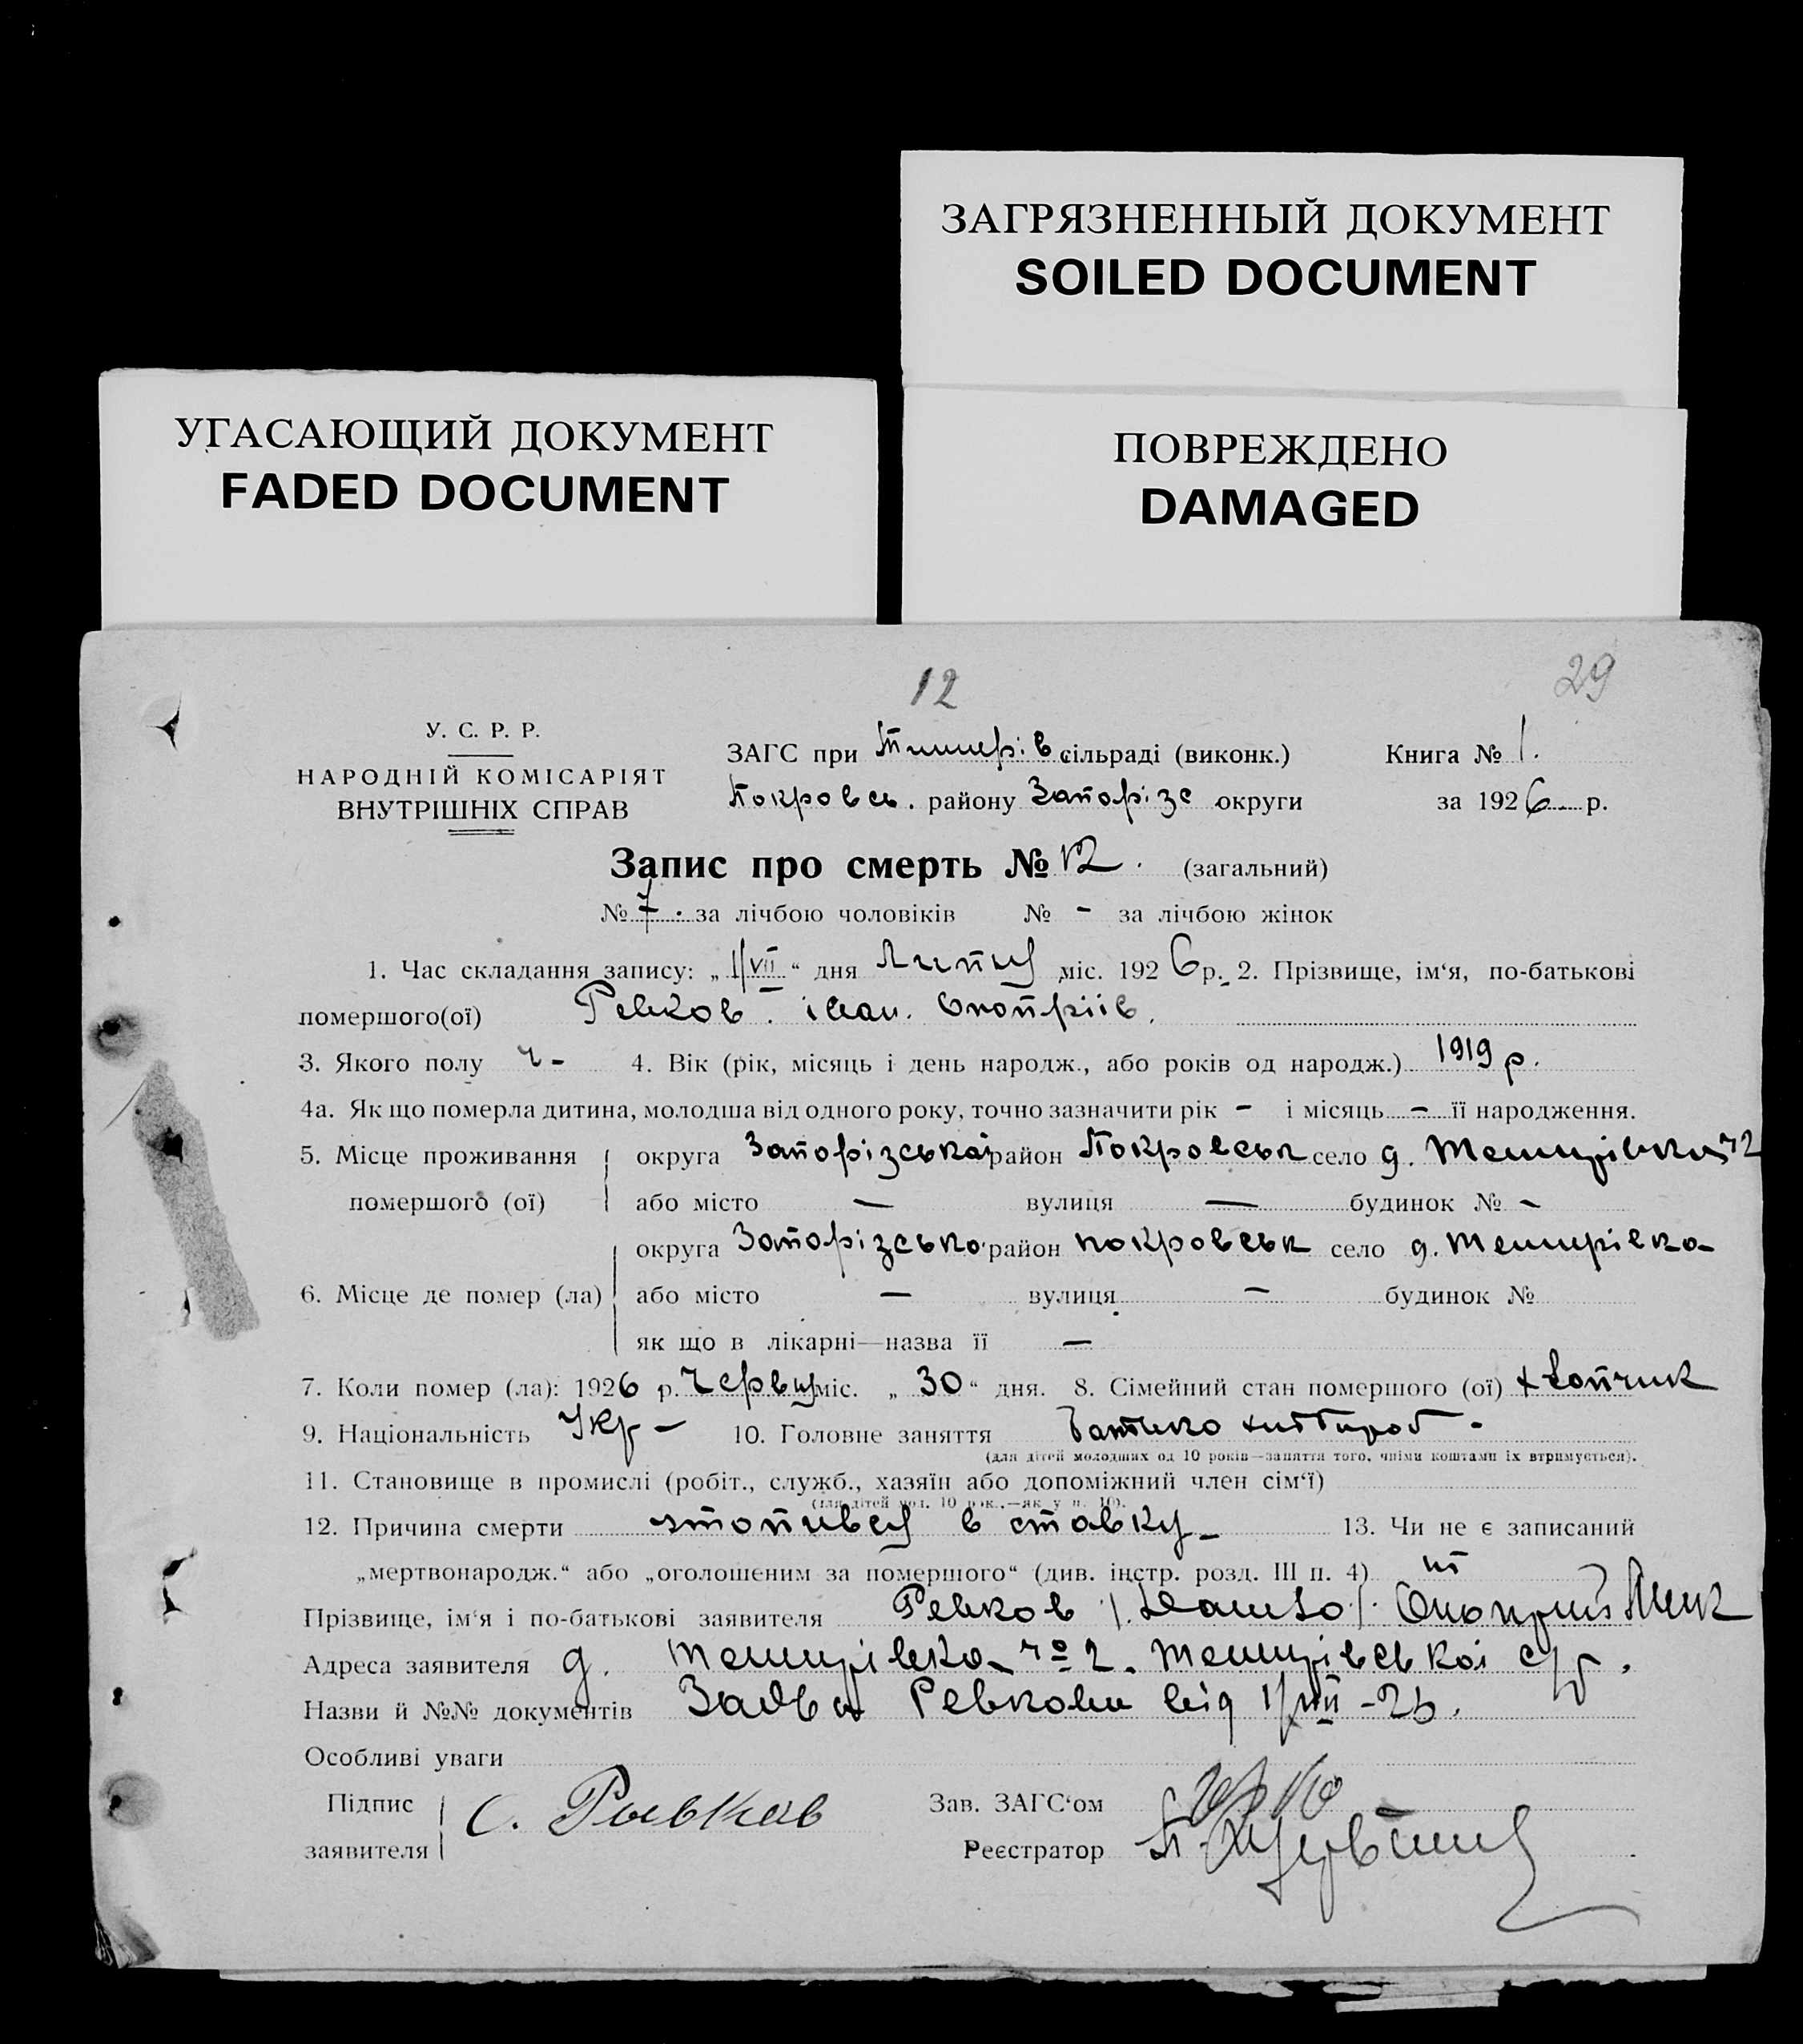 ЗАГРЯЗНЕННЫЙ ДОКУМЕНТ
SOILED DOCUMENT
УГАСАЮЩИЙ ДОКУМЕНТ
FADED DOCUMENT
ПОВРЕЖДЕНО
DAMAGED
12
29
У. С. Р. Р.
НАРОДНІЙ КОМІСАРІЯТ
ВНУТРІШНІХ СПРАВ
ЗАГС при сільраді (виконк.) Книга № 1.
Покровсь. району Запоріз округи за 1926 р.
Запис про смерть № 12. (загальний)
№ 7. за лічбою чоловіків № - за лічбою жінок
1. Час складання запису: „1/VII“ дня Липня міс. 1926 р. 2. Прізвище, ім‘я, по-батькові
помершого(ої) Ревков. іван.
3. Якого полу ч - 4. Вік (рік, місяць і день народж., або років од народж.) 1919 р.
4а. Як що померла дитина, молодша від одного року, точно зазначити рік - і місяць - її народження.
5. Місце проживання округа Запорізська район Покровськ село д. №2
помершого (ої) або місто — вулиця — будинок № -
округа Запорізська район покровськ село д.
6. Місце де помер (ла) або місто — вулиця — будинок №
як що в лікарні—назва її —
7. Коли помер (ла): 1926 р. Червня міс. „30“ дня. 8. Сімейний стан помершого (ої) хлопчик
9. Національність Укр - 10. Головне заняття Батько хлібороб -
(для дітей молодших од 10 років—заняття того, чиїми коштами їх втримується).
11. Становище в промислі (робіт., служб., хазяїн або допоміжний член сім‘ї)
(для дітей мол. 10 рок.,—як у п. 10).
12. Причина смерти втопився в ставку - 13. Чи не є записаний
„мертвонародж.“ або „оголошеним за помершого“ (див. інстр. розд. III п. 4) ні
Прізвище, ім‘я і по-батькові заявителя Ревков
Адреса заявителя д. №2. с/р.
Назви й №№ документів Заява Ревкова від 1/VII-26.
Особливі уваги
Підпис Зав. ЗАГС‘ом
С. Рывков
заявителя Реєстратор